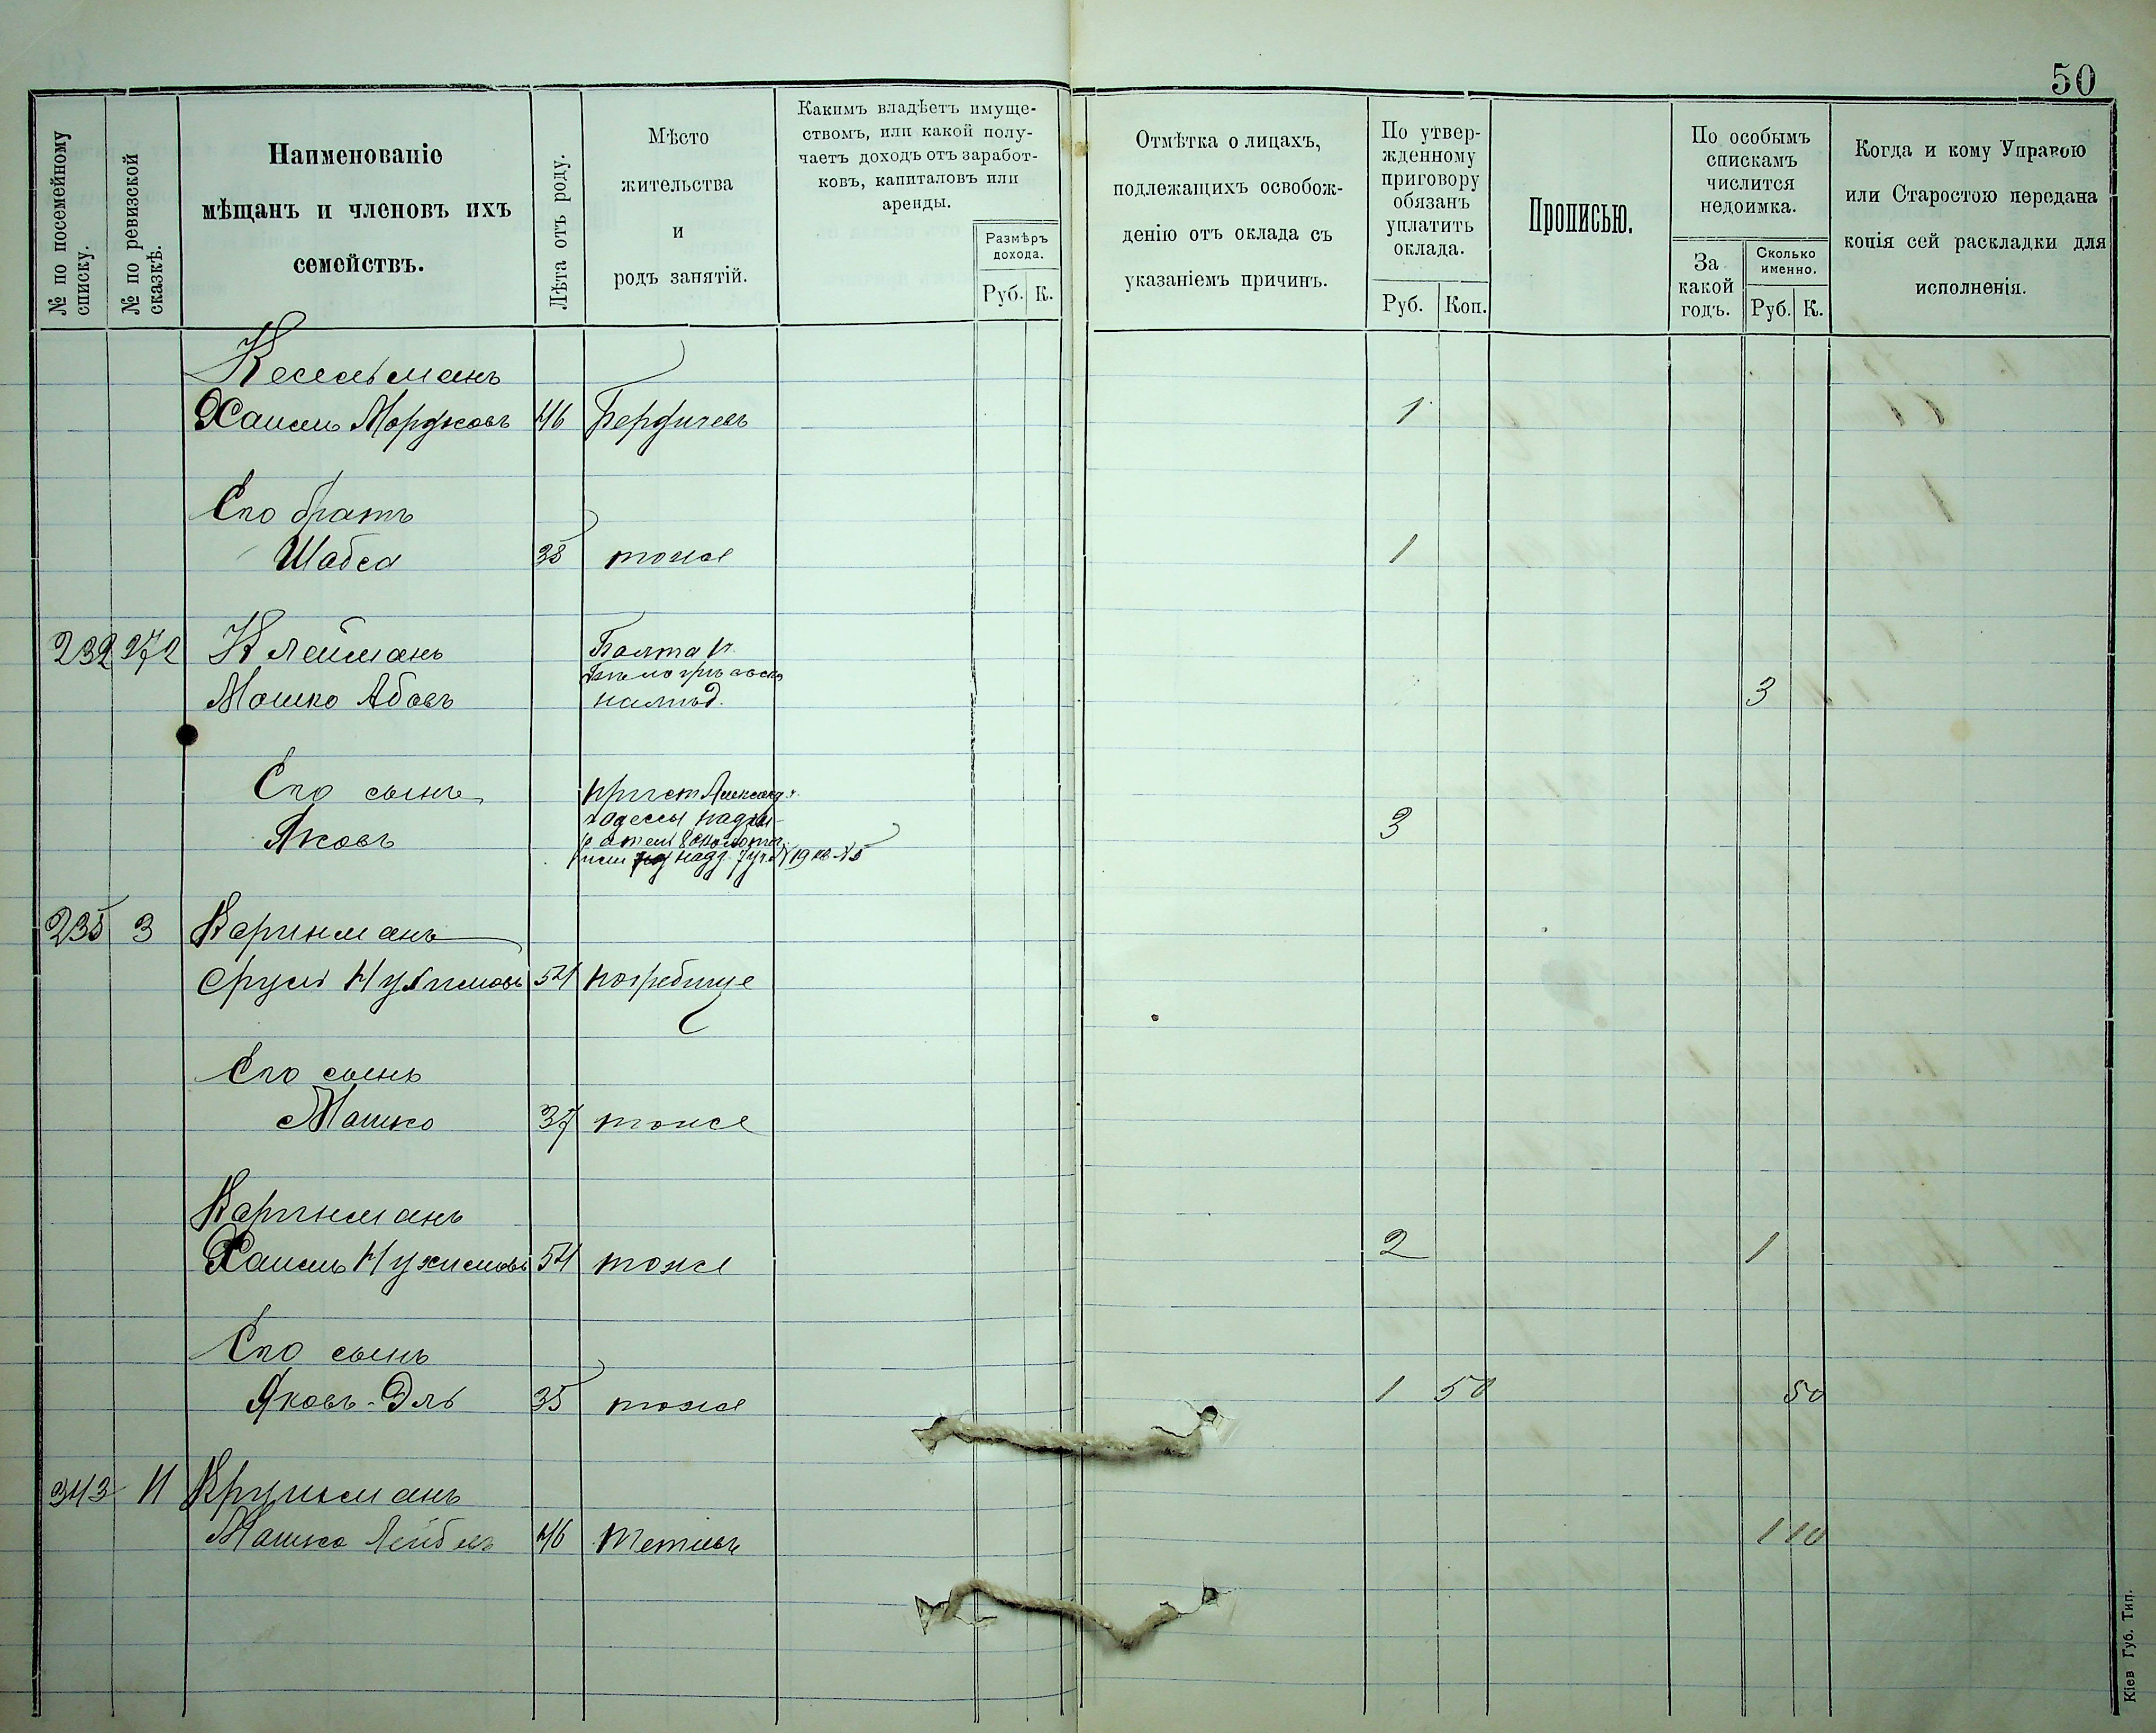 50
№ по посемейному списку.
№ по ревизской сказкѣ.
Наименованіе
мѣщанъ и членовъ ихъ
семействъ.
Лѣта отъ роду.
Мѣсто
жительства
и
родъ занятій.
Какимъ владѣетъ имуще-
ствомъ, или какой полу-
чаетъ доходъ отъ заработ-
ковъ, капиталовъ или
аренды.
Размѣръ
дохода.
Руб. К.
Отмѣтка о лицахъ,
подлежащихъ освобож-
денію отъ оклада съ
указаніемъ причинъ.
По утвер-
жденному
приговору
обязанъ
уплатить
оклада.
Руб. Коп.
Прописью.
По особымъ
спискамъ
числится
недоимка.
За
какой
годъ.
Сколько
именно.
Руб. К.
Когда и кому Управою
или Старостою передана
копія сей раскладки для
исполненія.
Кесельманъ
Хаимъ Мордковъ 46 Бердичевъ 1
Его братъ
Шабса 35 тоже 1
232 272 Клейманъ Балта
Мошко Абовъ 3
Его сынъ
Яковъ 3
235 3 Каринманъ
Сруль Нухимовъ 54 Погребище
Его сынъ
Мошко 37 тоже
Каринманъ
Хаимъ Нухимовъ 54 тоже 2 1
Его сынъ
Яковъ-Эль 35 тоже 1 50 50
343 11 Крупманъ
Мошко Лейбовъ 46 Тетіевъ 1 10
Кіев Губ. Тип.